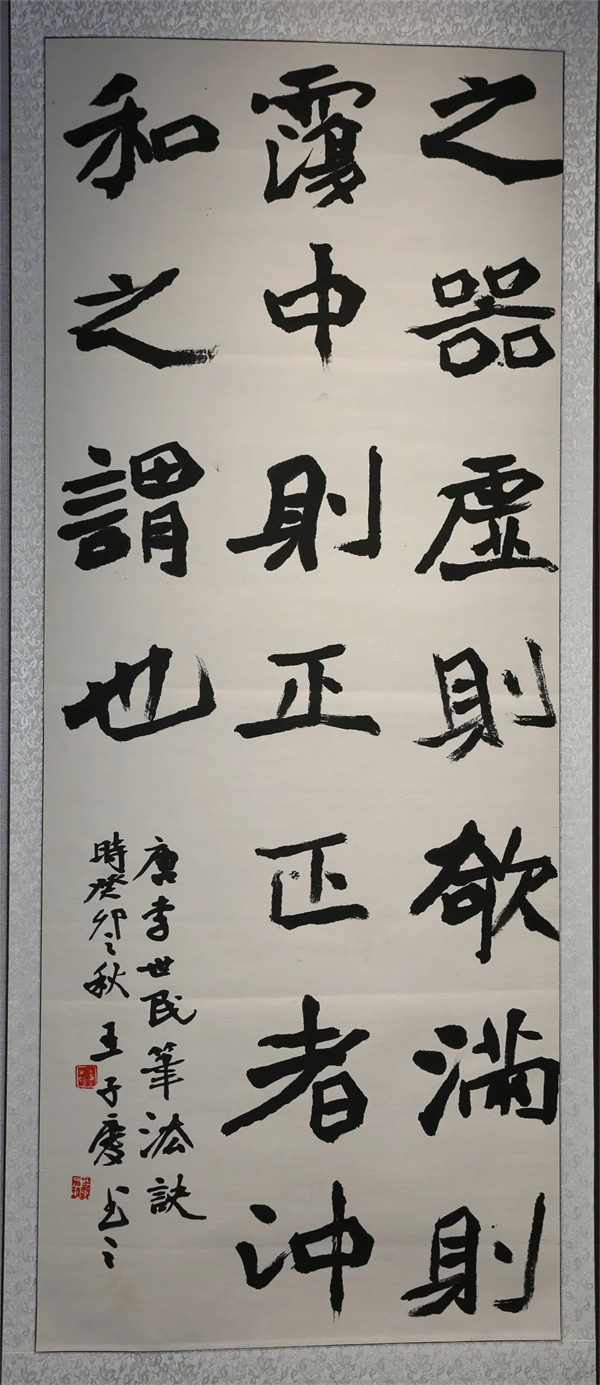 之器虛則欹滿則
覆中則正正者沖
和之謂也
唐李世民筆法訣
時癸卯之秋王子慶书之